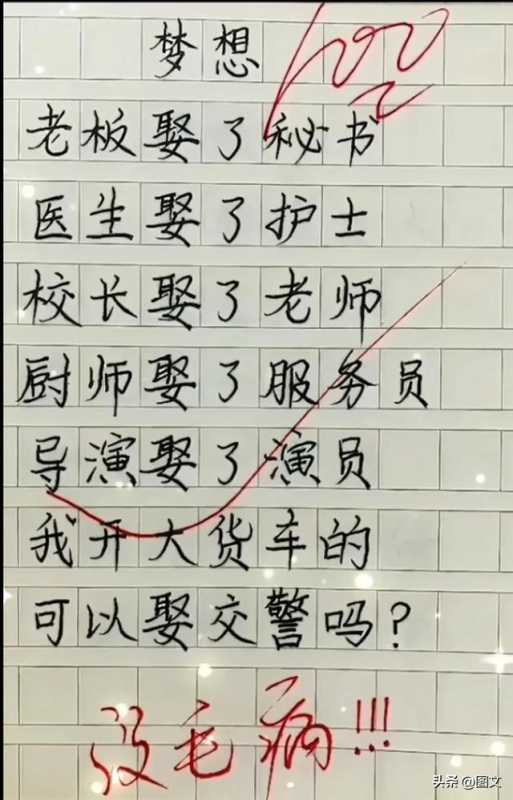 梦想
100
老板娶了秘书
医生娶了护士
校长娶了老师
厨师娶了服务员
导演娶了演员
我开大货车的
可以娶交警吗?
没毛病!!!
头条 @图文